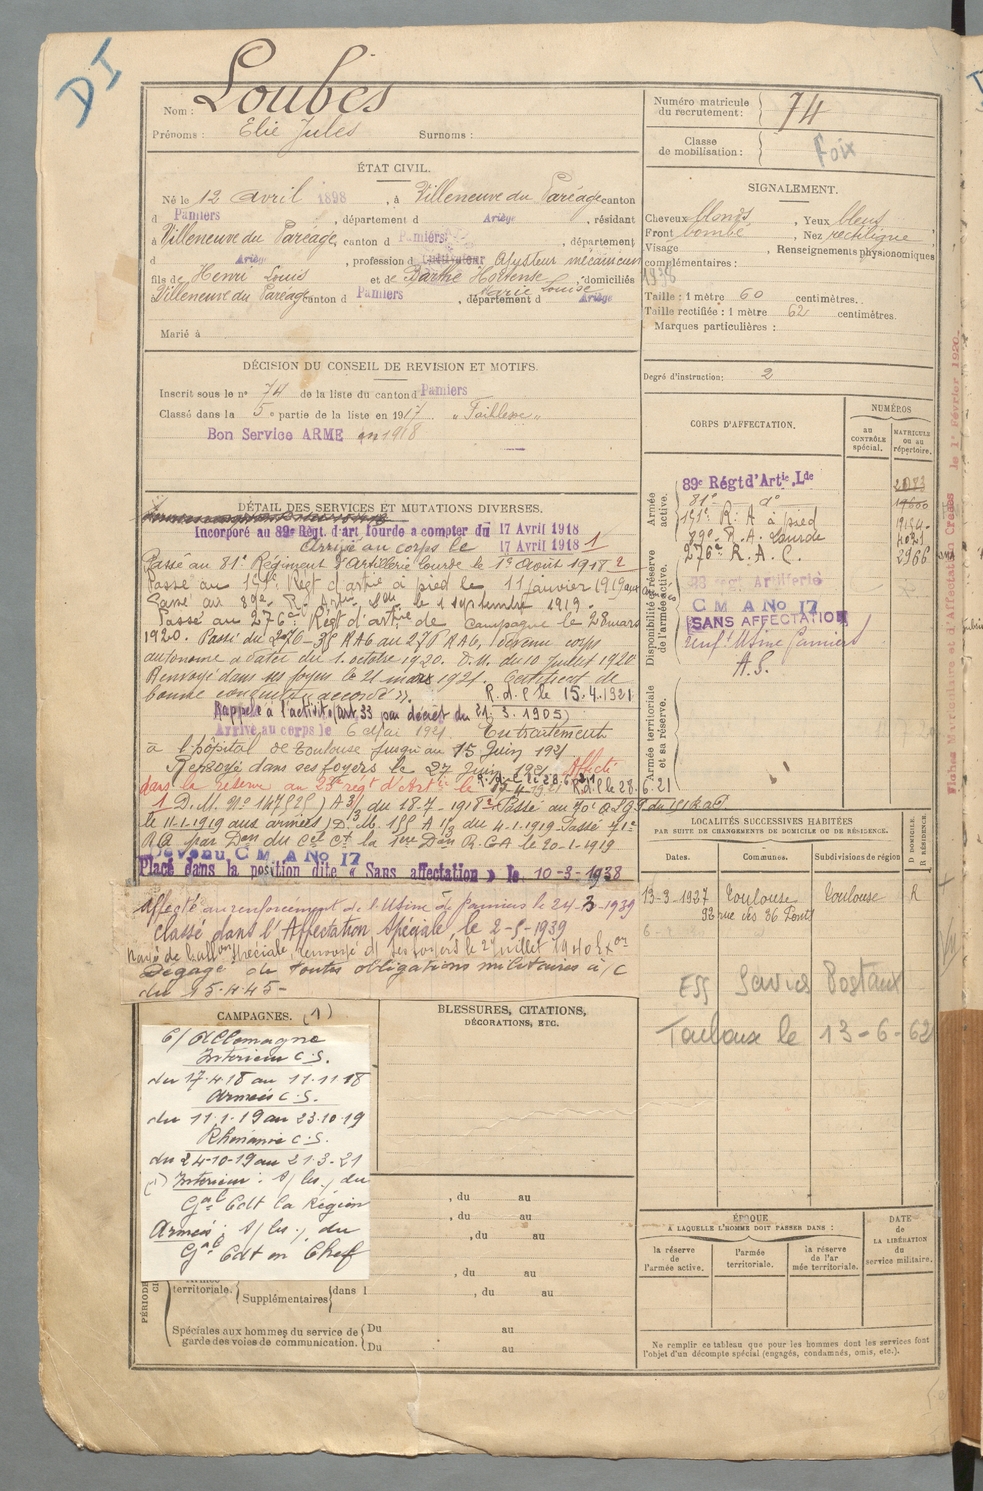 DI
Nom : Loubès
Prénoms : Elie Jules Surnoms :
Numéro matricule du recrutement : 74
Classe de mobilisation : Foix
ÉTAT CIVIL.
Né le 12 avril 1898, à Villeneuve du Paréage canton
d Pamiers, département d Ariège, résidant
à Villeneuve du Paréage, canton d Pamiers, département
d Ariège, profession d cultivateur ajusteur mécanicien
fils de Henri Louis et de Barthe Hortense Marie Louise, domiciliés
Villeneuve du Paréage canton d Pamiers, département d Ariège
Marié à
SIGNALEMENT.
Cheveux blonds, Yeux bleus
Front bombé, Nez rectiligne
Visage , Renseignements physionomiques
complémentaires :
1938
Taille : 1 mètre 60 centimètres.
Taille rectifiée : 1 mètre 62 centimètres.
Marques particulières :
Degré d'instruction : 2
DÉCISION DU CONSEIL DE REVISION ET MOTIFS.
Inscrit sous le no 74 de la liste du canton d Pamiers
Classé dans la 5e partie de la liste en 1917 "Faiblesse"
Bon Service ARMÉ en 1918
DÉTAIL DES SERVICES ET MUTATIONS DIVERSES.
Incorporé au 89e Régt. d'art lourde à compter du 17 Avril 1918
Arrivé au corps le 17 Avril 1918 1
Passé au 81e Régiment d'Artillerie lourde le 1er Août 1918 2
Passé au 151e Régt d'artie à pied le 11 janvier 1919 aux armées
Passé au 89e R. Artie Lde le 1 septembre 1919.
Passé au 276e Régt d'artie de Campagne le 28 mars
1920. Passé du 276e RAC au 276 RAC, devenu corps
autonome à dater du 1. octobre 1920. D.M. du 10 juillet 1920
Renvoyé dans ses foyers le 21 mars 1921. Certificat de
bonne conduite "accordé". R.d.C le 15.4.1921
Rappelé à l'activité (art 33 par décret du 21. 3. 1905)
Arrivé au corps le 6 Mai 1921. En traitement
à l'hôpital de Toulouse jusqu'au 15 Juin 1921
Renvoyé dans ses foyers le 27 Juin 1921 Affecté
dans la réserve au 23e régt d'Artie le R.d.C le 28-6-21
1 D.M. No 14752 A 3/3 du 18-7-1918
le 11-1-1919 aux armées D.M. 155 A 1/3 du 4-1-1919 Passé
RA par Don du Cel Ct la 1ère Don R.G.A le 20-1-1919
Devenu C M A No 17
Placé dans la position dite « Sans affectation » le 10-3-1938
Affecté au renforcement de l'Usine de Pamiers le 24-3-1939
classé dans l'Affectation Spéciale le 2-5-1939
Rayé de l'affon Spéciale, renvoyé ds ses foyers le 2 juillet 1940
Dégagé de toutes obligations militaires à/c
du 15-4-45-
CORPS D'AFFECTATION.
NUMÉROS
au CONTRÔLE spécial.
MATRICULE ou au répertoire.
Armée active.
89e Régt d'Artie Lde
81e do
151e R. A à pied
89e R. A. Lourde
276e R. A. C.
2966
Disponibilité et réserve de l'armée active.
Régt Artillerie
C M A No 17
SANS AFFECTATION
renft Usine Pamiers
A.S.
Armée territoriale et sa réserve.
LOCALITÉS SUCCESSIVES HABITÉES
PAR SUITE DE CHANGEMENTS DE DOMICILE OU DE RÉSIDENCE.
Dates. Communes. Subdivisions de région D DOMICILE R RÉSIDENCE.
13-3-1927 Toulouse Toulouse R
32 rue des 36 Ponts
Ess Services Postaux
Toulouse le 13-6-62
CAMPAGNES. (1)
C/ Allemagne
Intérieur C.S.
du 17-4-18 au 11-11-18
Armées C.S.
du 11-1-19 au 23-10-19
Rhénanie C.S.
du 24-10-19 au 21-3-21
(1) Intérieur : du
Gal Cdt la Région
Armées : du
Gal Cdt en Chef
BLESSURES, CITATIONS,
DÉCORATIONS, ETC.
, du au
, du au
, du au
, du au
PÉRIODE
territoriale. Supplémentaires dans l , du au
Spéciales aux hommes du service de garde des voies de communication. Du au
Du au
ÉPOQUE
A LAQUELLE L'HOMME DOIT PASSER DANS :
la réserve de l'armée active.
l'armée territoriale.
la réserve de l'armée territoriale.
DATE de LA LIBÉRATION du service militaire.
Ne remplir ce tableau que pour les hommes dont les services font
l'objet d'un décompte spécial (engagés, condamnés, omis, etc.).
Fiches Matriculaire et d'Affectation Créées le 1er Février 1920